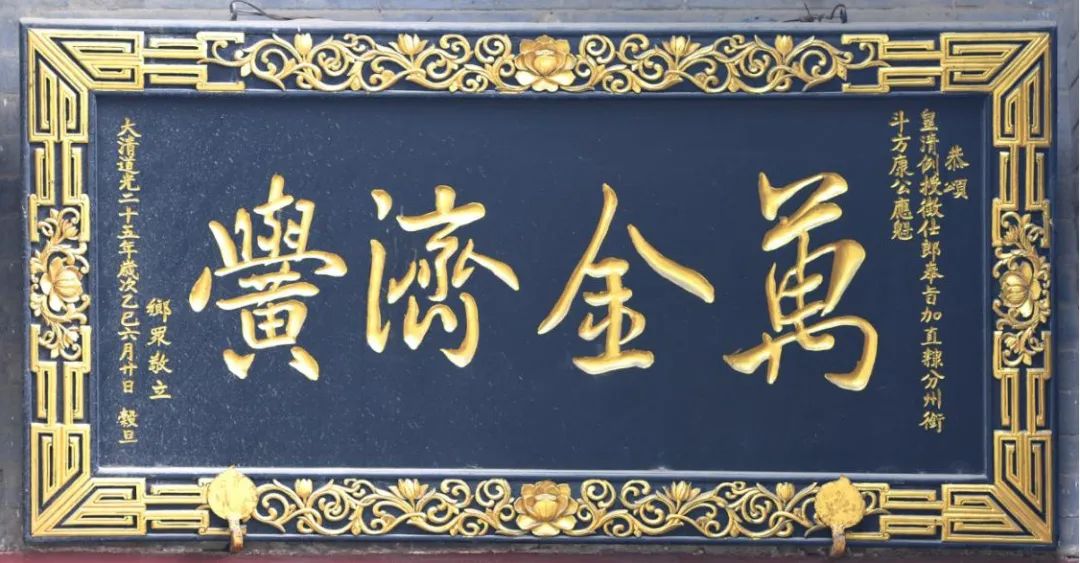 恭頌
皇清例授徵仕郎奉旨加直隸分州銜
斗方康公應魁
萬金濟黌
大清道光二十五年歲次乙巳六月廿日 穀旦
鄉眾敬立